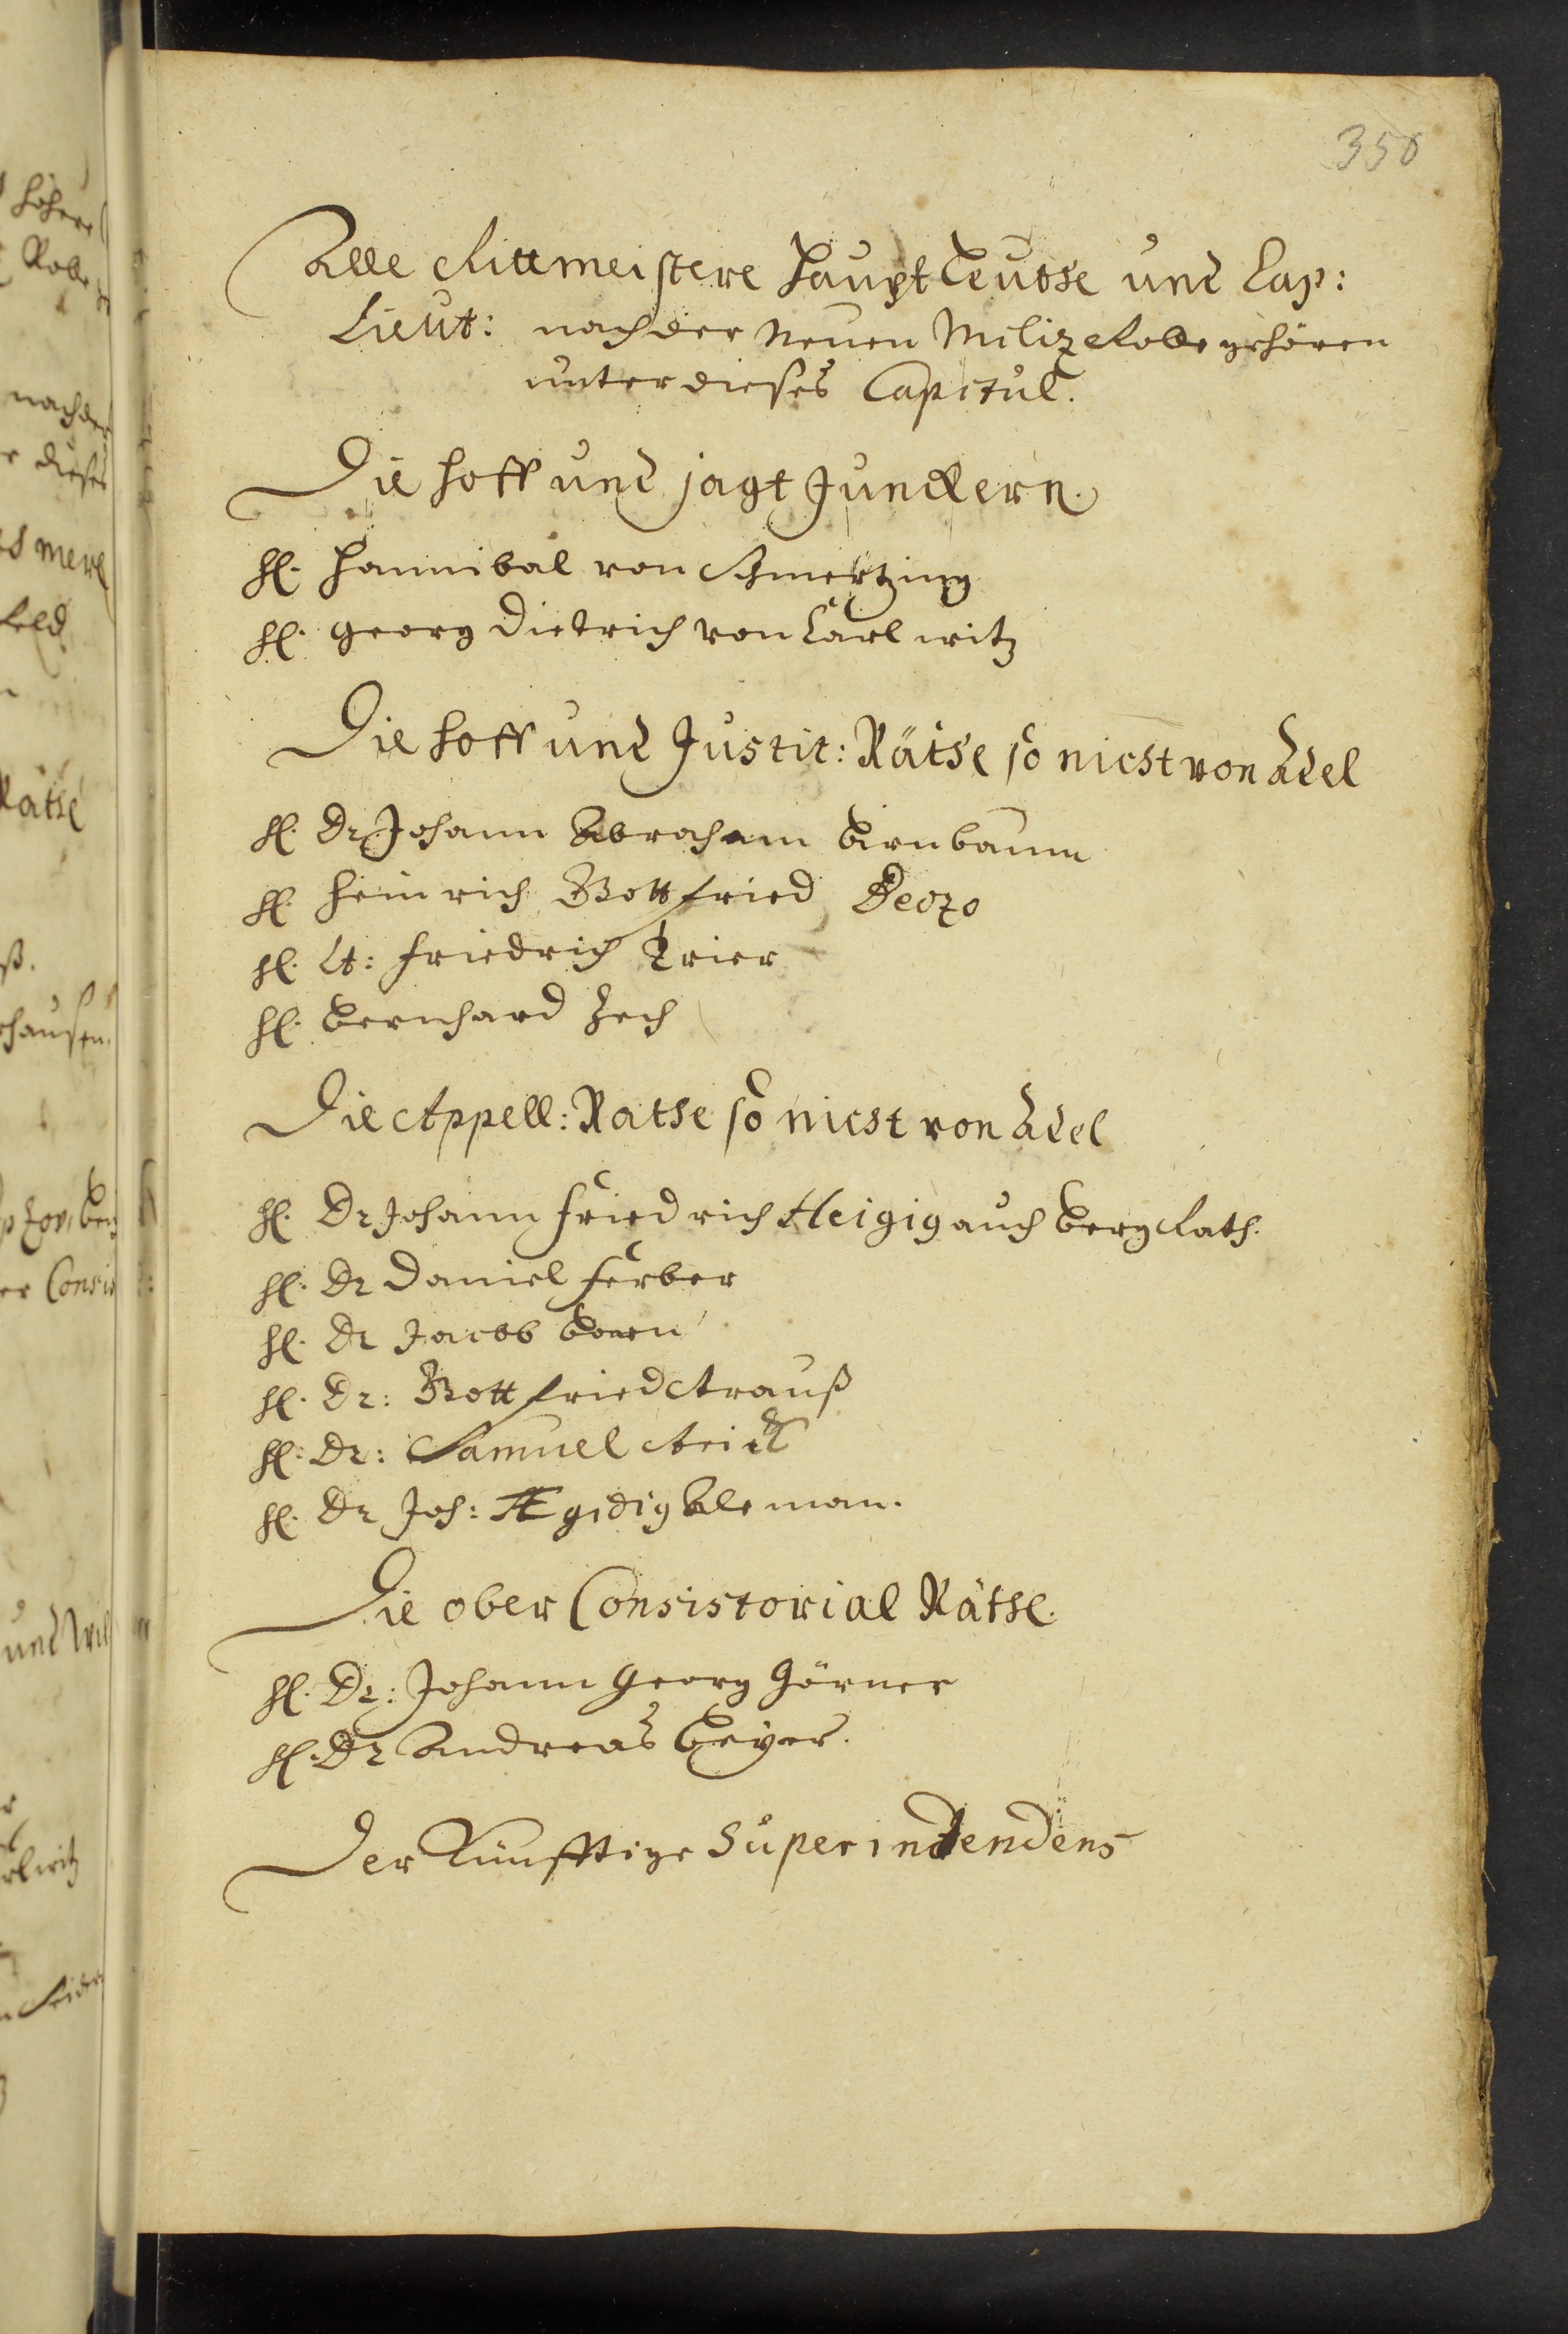 350
Alle Rittmeistere Haupt Leuthe und Cap:
Lieut: nach der Neuen Miliz Rolle gehören
unter dieses Capitul.
Die Hoff und Jagt Junckern.
H. Hannibal von Schmertzing
H. Georg Dietrich von Carlwitz
Die Hoff und Justit: Räthe so nicht von Adel
H. Dr Johann Abraham Birnbaum
H. Heinrich Gottfried
H. Lt: Friedrich Trier
H. Bernhard Zech
Die Appell: Rathe so nicht von Adel
H. Dr Johann Friedrich Heigig auch Berg Rath.
H. Dr Daniel Ferber
H. Dr Jacob Born
H. Dr: Gottfried Strauß
H. Dr: Samuel
H. Dr Joh: Ægidig Aleman.
Die ober Consistorial Räthe.
H. Dr: Johann Georg Hörner
H. Dr Andreas Beyer.
Der Künfftige Superindendens